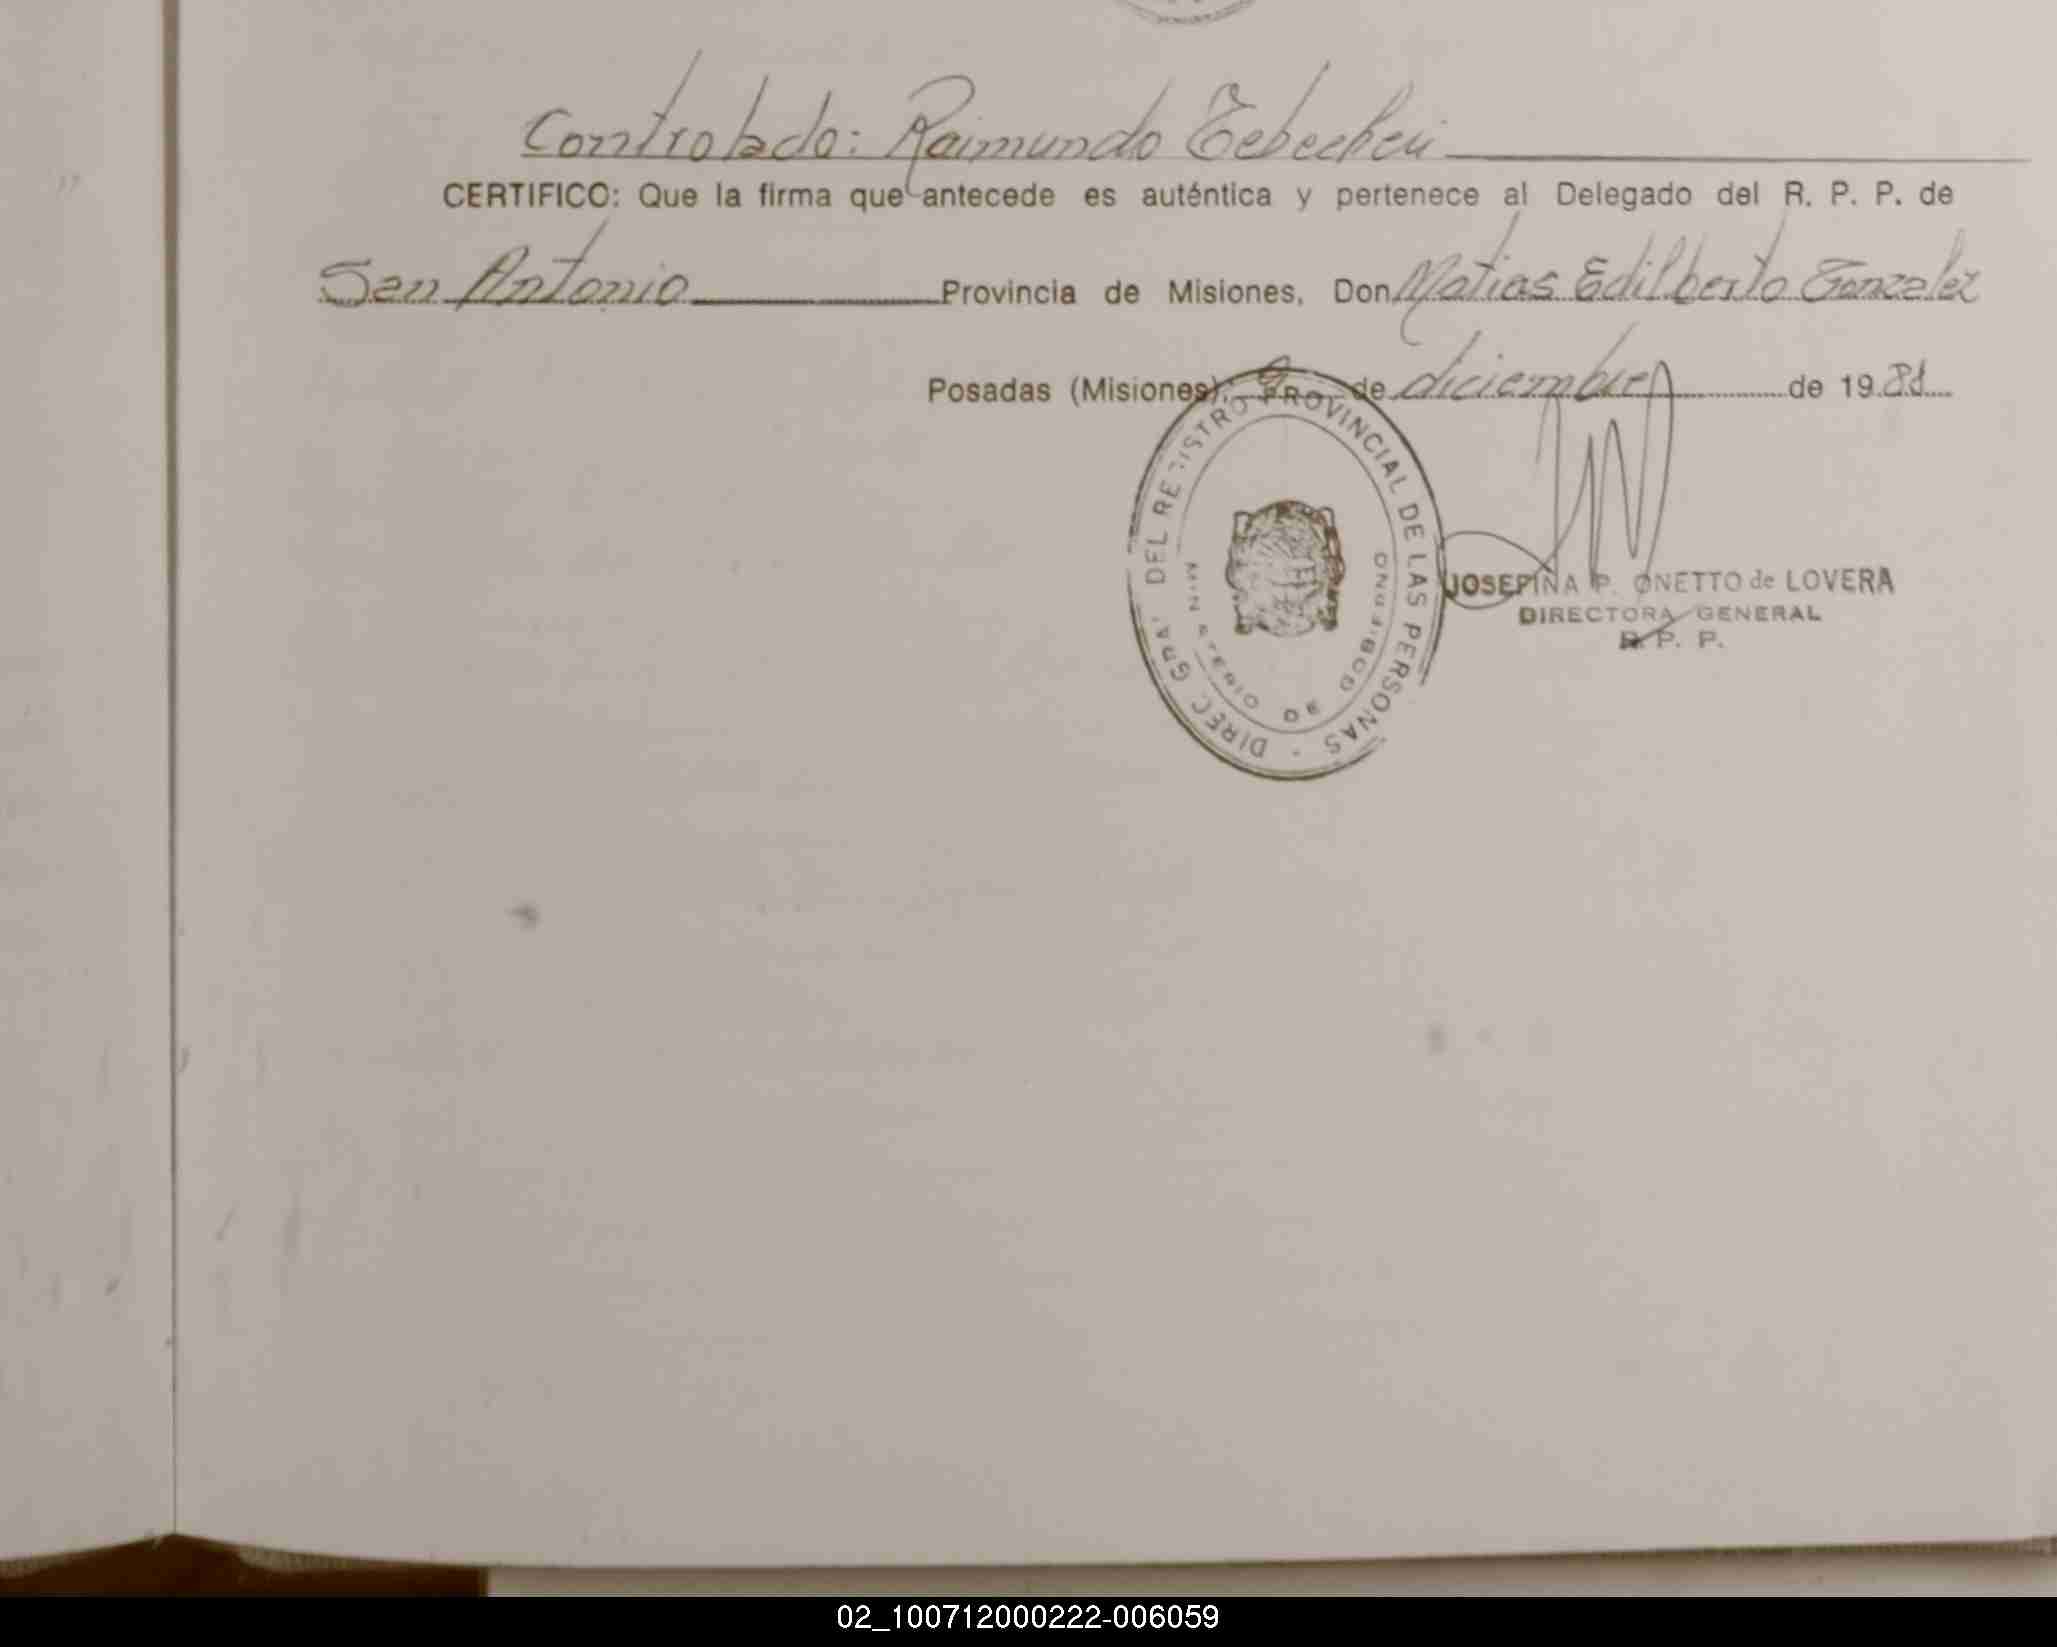 Controlado: Raimundo
CERTIFICO: Que la firma que antecede es auténtica y pertenece al Delegado del R. P. P. de
San Antonio Provincia de Misiones, Don Matias Edilberto Gonzalez
Posadas (Misiones), 9 de diciembre de 1981
DIREC GRAL DEL REGISTRO PROVINCIAL DE LAS PERSONAS
MINISTERIO DE GOBIERNO
JOSEFINA P. ONETTO de LOVERA
DIRECTORA GENERAL
R. P. P.
02_100712000222-006059